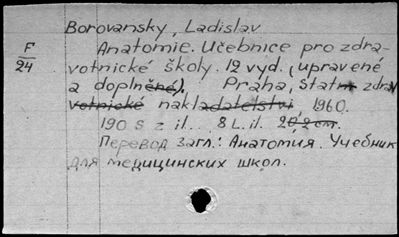 Borovansky, Ladislav
F
24
Anatomie. Učebnice pro zdra-
votnické školy. 12 vyd. (upravené
a doplněné). Praha, Statn zdrav
votnické nakladatelství, 1960.
190 s z il. 8 L. il. 20,2 cm.
Перевод загл.: Анатомия. Учебник
для медицинских школ.